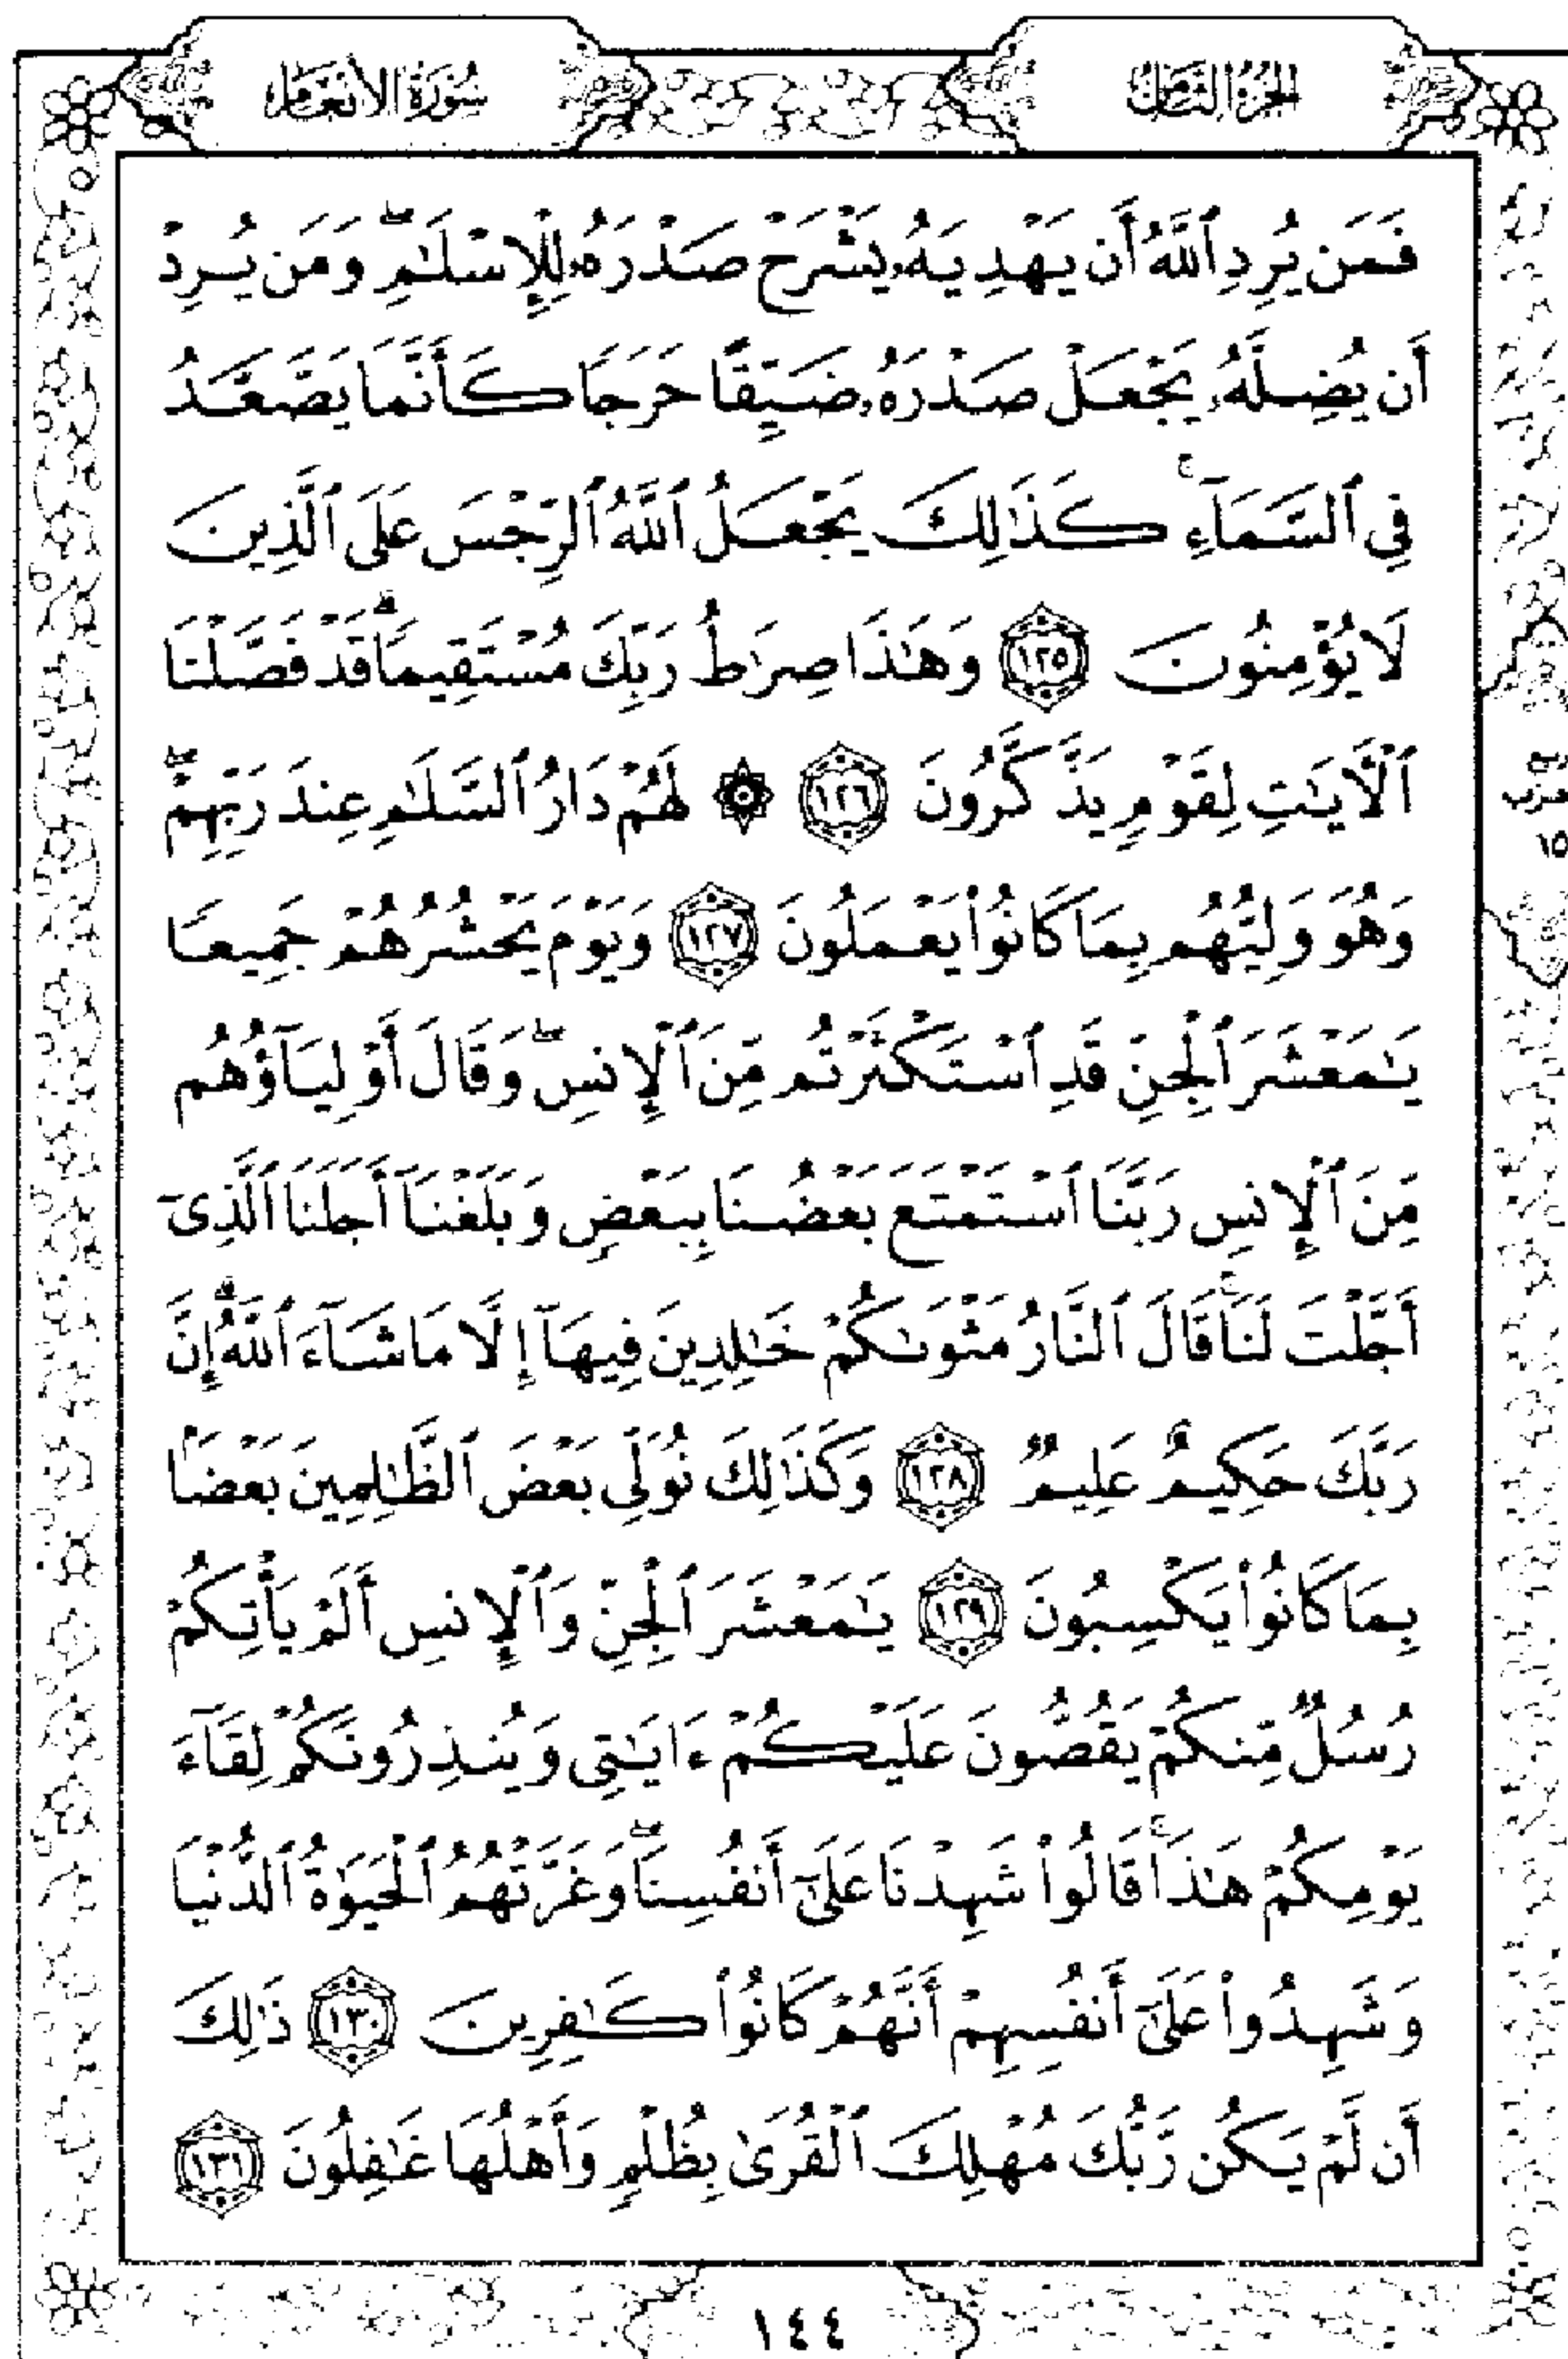 الجزء الثامن
سورة الأنعام
فَمَن يُرِدِ ٱللَّهُ أَن يَهْدِيَهُۥ يَشْرَحْ صَدْرَهُۥ لِلْإِسْلَٰمِ ۖ وَمَن يُرِدْ
أَن يُضِلَّهُۥ يَجْعَلْ صَدْرَهُۥ ضَيِّقًا حَرَجًا كَأَنَّمَا يَصَّعَّدُ
فِي ٱلسَّمَآءِ ۚ كَذَٰلِكَ يَجْعَلُ ٱللَّهُ ٱلرِّجْسَ عَلَى ٱلَّذِينَ
لَا يُؤْمِنُونَ ١٢٥ وَهَٰذَا صِرَٰطُ رَبِّكَ مُسْتَقِيمًا ۗ قَدْ فَصَّلْنَا
ٱلْءَايَٰتِ لِقَوْمٍ يَذَّكَّرُونَ ١٢٦ ۞ لَهُمْ دَارُ ٱلسَّلَٰمِ عِندَ رَبِّهِمْ ۖ
وَهُوَ وَلِيُّهُم بِمَا كَانُوا۟ يَعْمَلُونَ ١٢٧ وَيَوْمَ يَحْشُرُهُمْ جَمِيعًا
يَٰمَعْشَرَ ٱلْجِنِّ قَدِ ٱسْتَكْثَرْتُم مِّنَ ٱلْإِنسِ ۖ وَقَالَ أَوْلِيَآؤُهُم
مِّنَ ٱلْإِنسِ رَبَّنَا ٱسْتَمْتَعَ بَعْضُنَا بِبَعْضٍ وَبَلَغْنَآ أَجَلَنَا ٱلَّذِىٓ
أَجَّلْتَ لَنَا ۚ قَالَ ٱلنَّارُ مَثْوَىٰكُمْ خَٰلِدِينَ فِيهَآ إِلَّا مَا شَآءَ ٱللَّهُ ۗ إِنَّ
رَبَّكَ حَكِيمٌ عَلِيمٌ ١٢٨ وَكَذَٰلِكَ نُوَلِّى بَعْضَ ٱلظَّٰلِمِينَ بَعْضًۢا
بِمَا كَانُوا۟ يَكْسِبُونَ ١٢٩ يَٰمَعْشَرَ ٱلْجِنِّ وَٱلْإِنسِ أَلَمْ يَأْتِكُمْ
رُسُلٌ مِّنكُمْ يَقُصُّونَ عَلَيْكُمْ ءَايَٰتِى وَيُنذِرُونَكُمْ لِقَآءَ
يَوْمِكُمْ هَٰذَا ۚ قَالُوا۟ شَهِدْنَا عَلَىٰٓ أَنفُسِنَا ۖ وَغَرَّتْهُمُ ٱلْحَيَوٰةُ ٱلدُّنْيَا
وَشَهِدُوا۟ عَلَىٰٓ أَنفُسِهِمْ أَنَّهُمْ كَانُوا۟ كَٰفِرِينَ ١٣٠ ذَٰلِكَ
أَن لَّمْ يَكُن رَّبُّكَ مُهْلِكَ ٱلْقُرَىٰ بِظُلْمٍ وَأَهْلُهَا غَٰفِلُونَ ١٣١
حزب
١٥
١٤٤